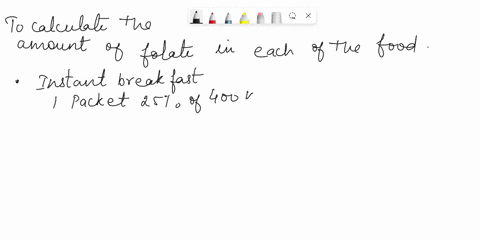 To calculate the
amount of folate in each of the food.
• Instant breakfast
1 Packet 25% of 400